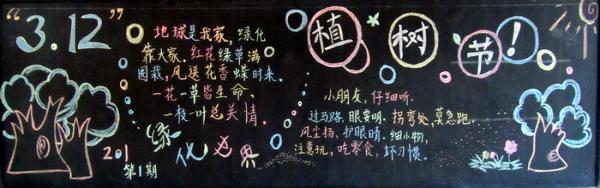 “3.12”
地球是我家，绿化
靠大家。红花绿草满
园栽，风送花香蝶时来。
一花一草皆生命，
一枝一叶总关情。
绿化世界
201
第1期
植树节！
小朋友，仔细听，
过马路，眼要明。拐弯处，莫急跑，
风尘扬，护眼睛。细小物，
注意玩，吃零食，坏习惯。